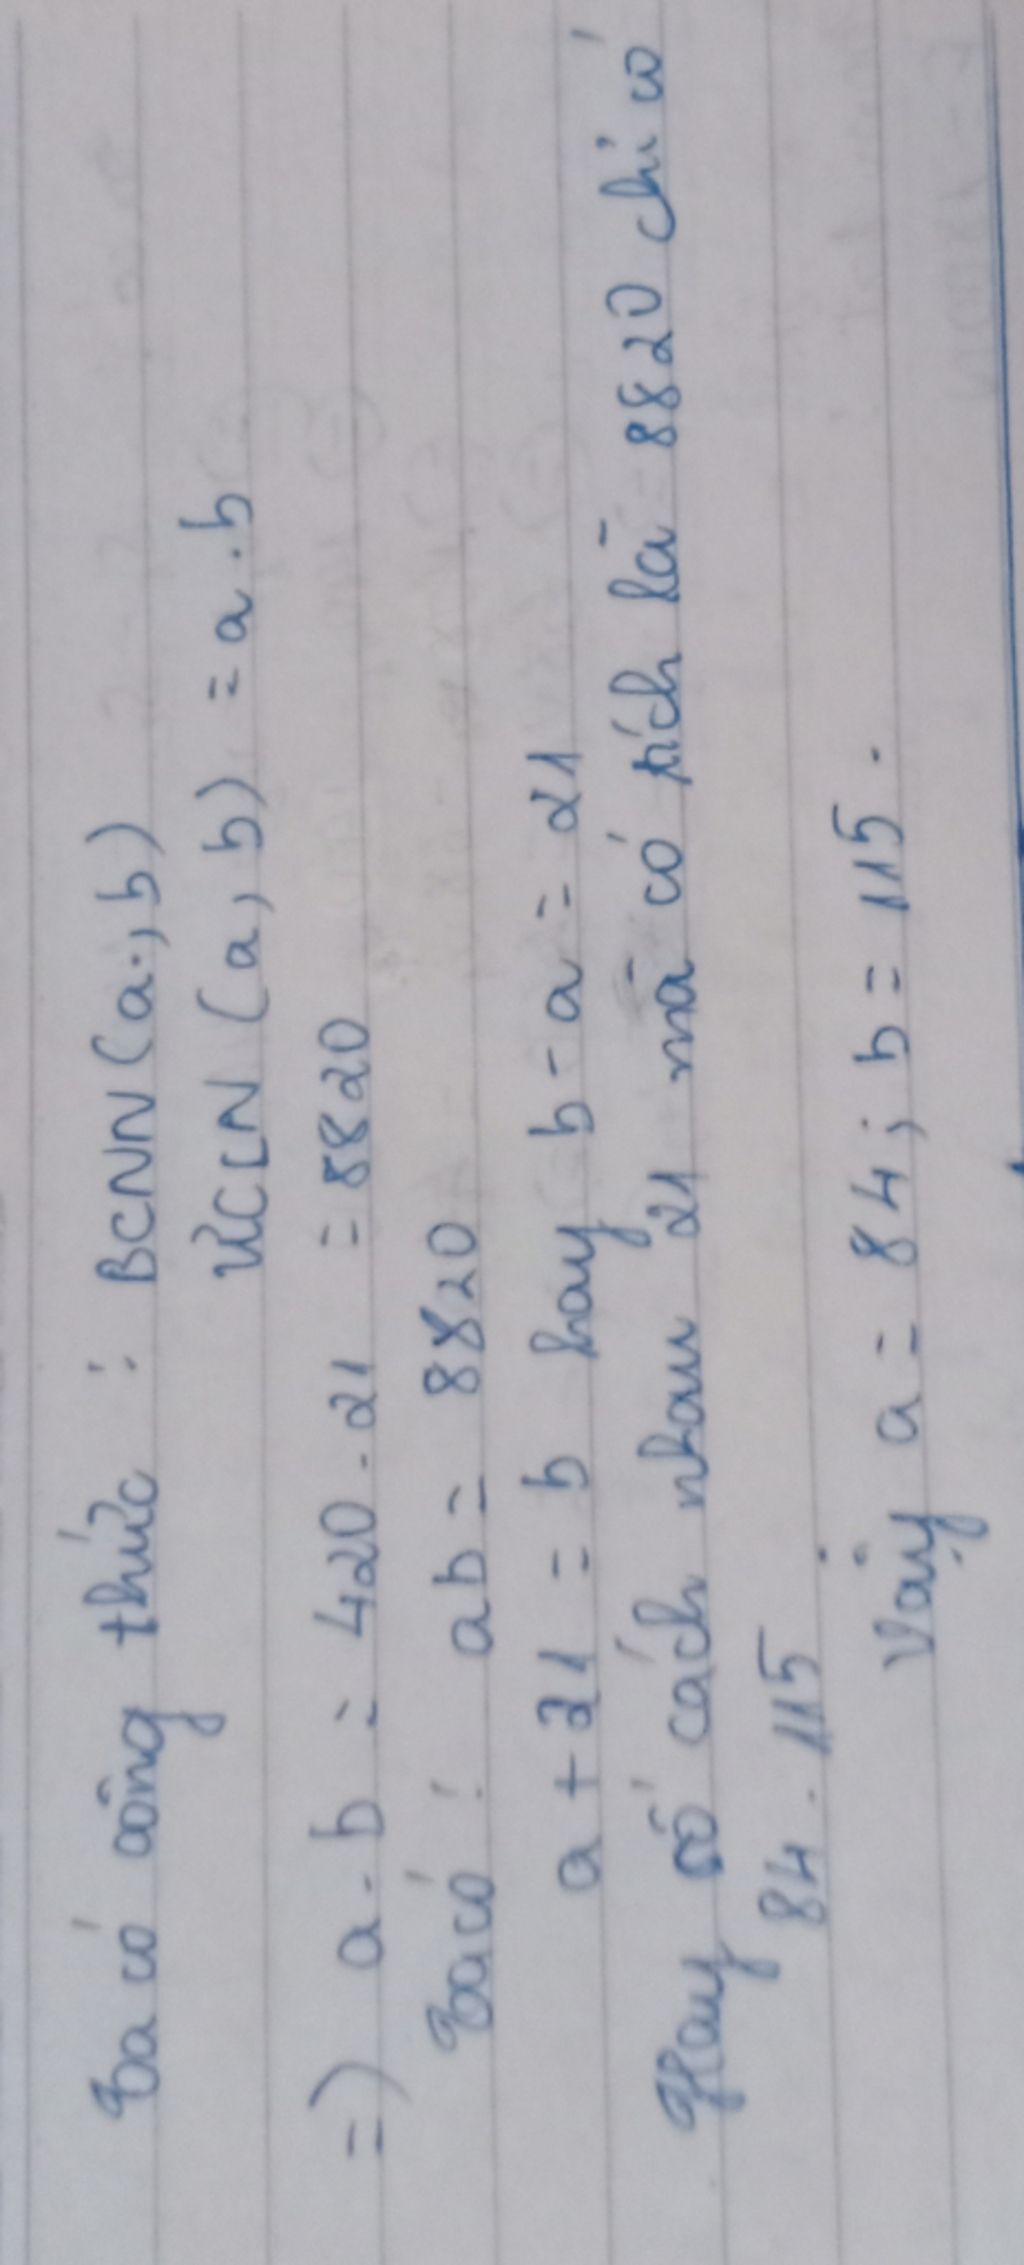 Ta có công thức : BCNN(a, b)
ƯCLN(a, b) = a.b
=) a.b = 420.21 = 8820
Ta có: ab = 8820
a + 21 = b hay b - a = 21
Hay số cách nhau 21 mà có tích là 8820 chỉ có
84.115
Vậy a = 84; b = 115.